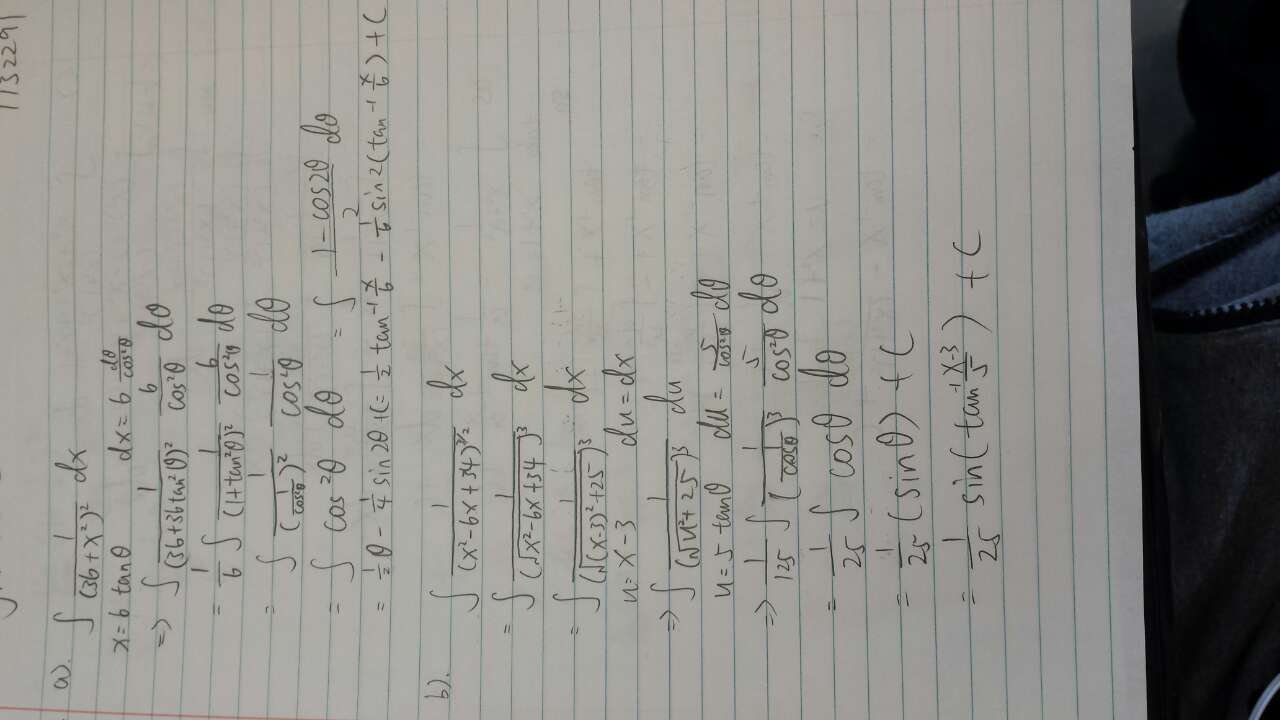 1132291
a). ∫ 1/(36+x²)² dx
x = 6 tanθ dx = 6 dθ/cos²θ
=> ∫ 1/(36+36tan²θ)² 6/cos²θ dθ
= 1/6 ∫ 1/(1+tan²θ)² 6/cos²θ dθ
= ∫ 1/(1/cos²θ)² 1/cos²θ dθ
= ∫ cos²θ dθ = ∫ (1-cos2θ)/2 dθ
= 1/2 θ - 1/4 sin2θ + C = 1/2 tan⁻¹ x/6 - 1/6 sin2(tan⁻¹ x/6) + C
b). ∫ 1/(x²-6x+34)^(3/2) dx
= ∫ 1/(√(x²-6x+34))³ dx
= ∫ 1/(√((x-3)²+25))³ dx
u = x-3 du = dx
=> ∫ 1/(√(u²+25))³ du
u = 5 tanθ du = 5/cos²θ dθ
=> 1/125 ∫ 1/(1/cosθ)³ 5/cos²θ dθ
= 1/25 ∫ cosθ dθ
= 1/25 (sinθ) + C
= 1/25 sin(tan⁻¹ (x-3)/5) + C